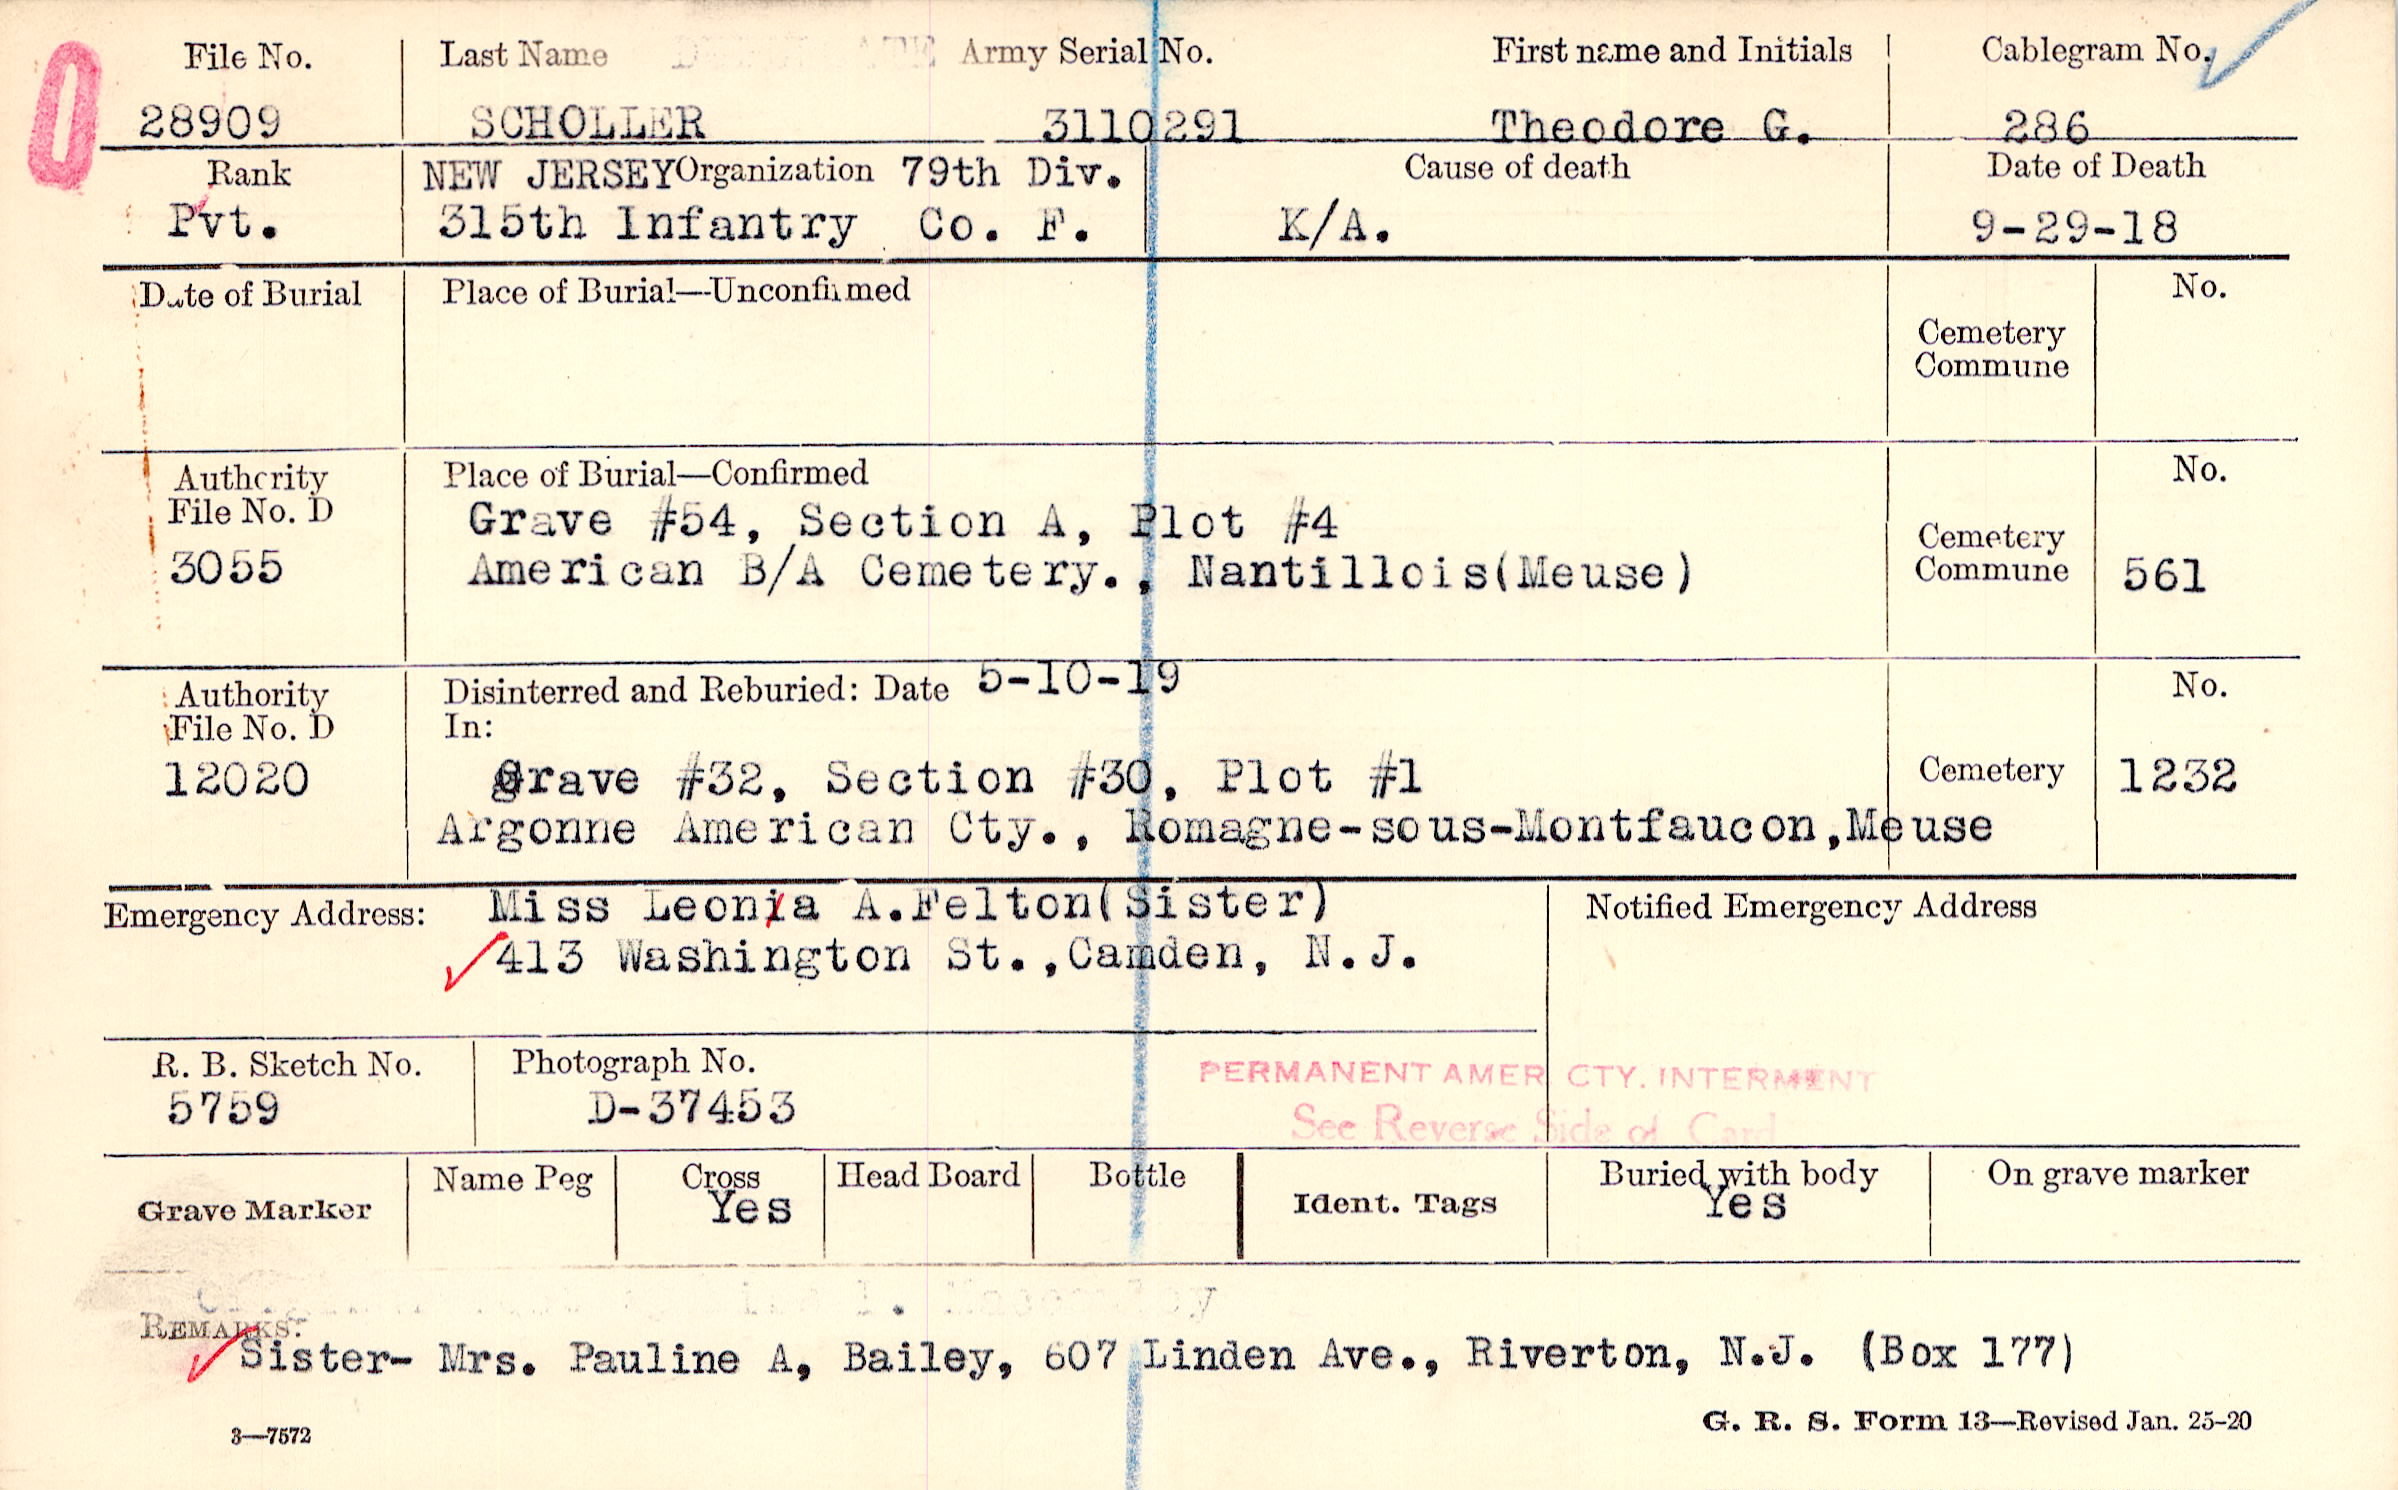 File No. Last Name Army Serial No. First name and Initials Cablegram No.
28909 SCHOLLER 3110291 Theodore G. 286
Rank NEW JERSEY Organization 79th Div. Cause of death Date of Death
Pvt. 315th Infantry Co. F. K/A. 9-29-18
Date of Burial Place of Burial—Unconfirmed No.
Cemetery
Commune
Authority Place of Burial—Confirmed No.
File No. D Grave #54, Section A, Plot #4 Cemetery
3055 American B/A Cemetery., Nantillois(Meuse) Commune 561
Authority Disinterred and Reburied: Date 5-10-19 No.
File No. D In:
12020 Grave #32, Section #30, Plot #1 Cemetery 1232
Argonne American Cty., Romagne-sous-Montfaucon,Meuse
Emergency Address: Miss Leonia A.Felton(Sister) Notified Emergency Address
413 Washington St.,Camden, N.J.
R. B. Sketch No. Photograph No. PERMANENT AMER. CTY. INTERMENT
5759 D-37453 See Reverse Side of Card
Grave Marker Name Peg Cross Head Board Bottle Ident. Tags Buried with body On grave marker
Yes Yes
REMARKS:
Sister- Mrs. Pauline A, Bailey, 607 Linden Ave., Riverton, N.J. (Box 177)
3—7572 G. R. S. Form 13—Revised Jan. 25-20